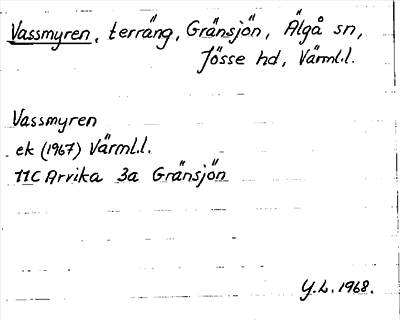 Vassmyren, terräng, Gränsjön, Älgå sn,
Jösse hd, Värml.l.
Vassmyren
ek (1967) Värml.l.
11C Arvika 3a Gränsjön
Y.L. 1968.